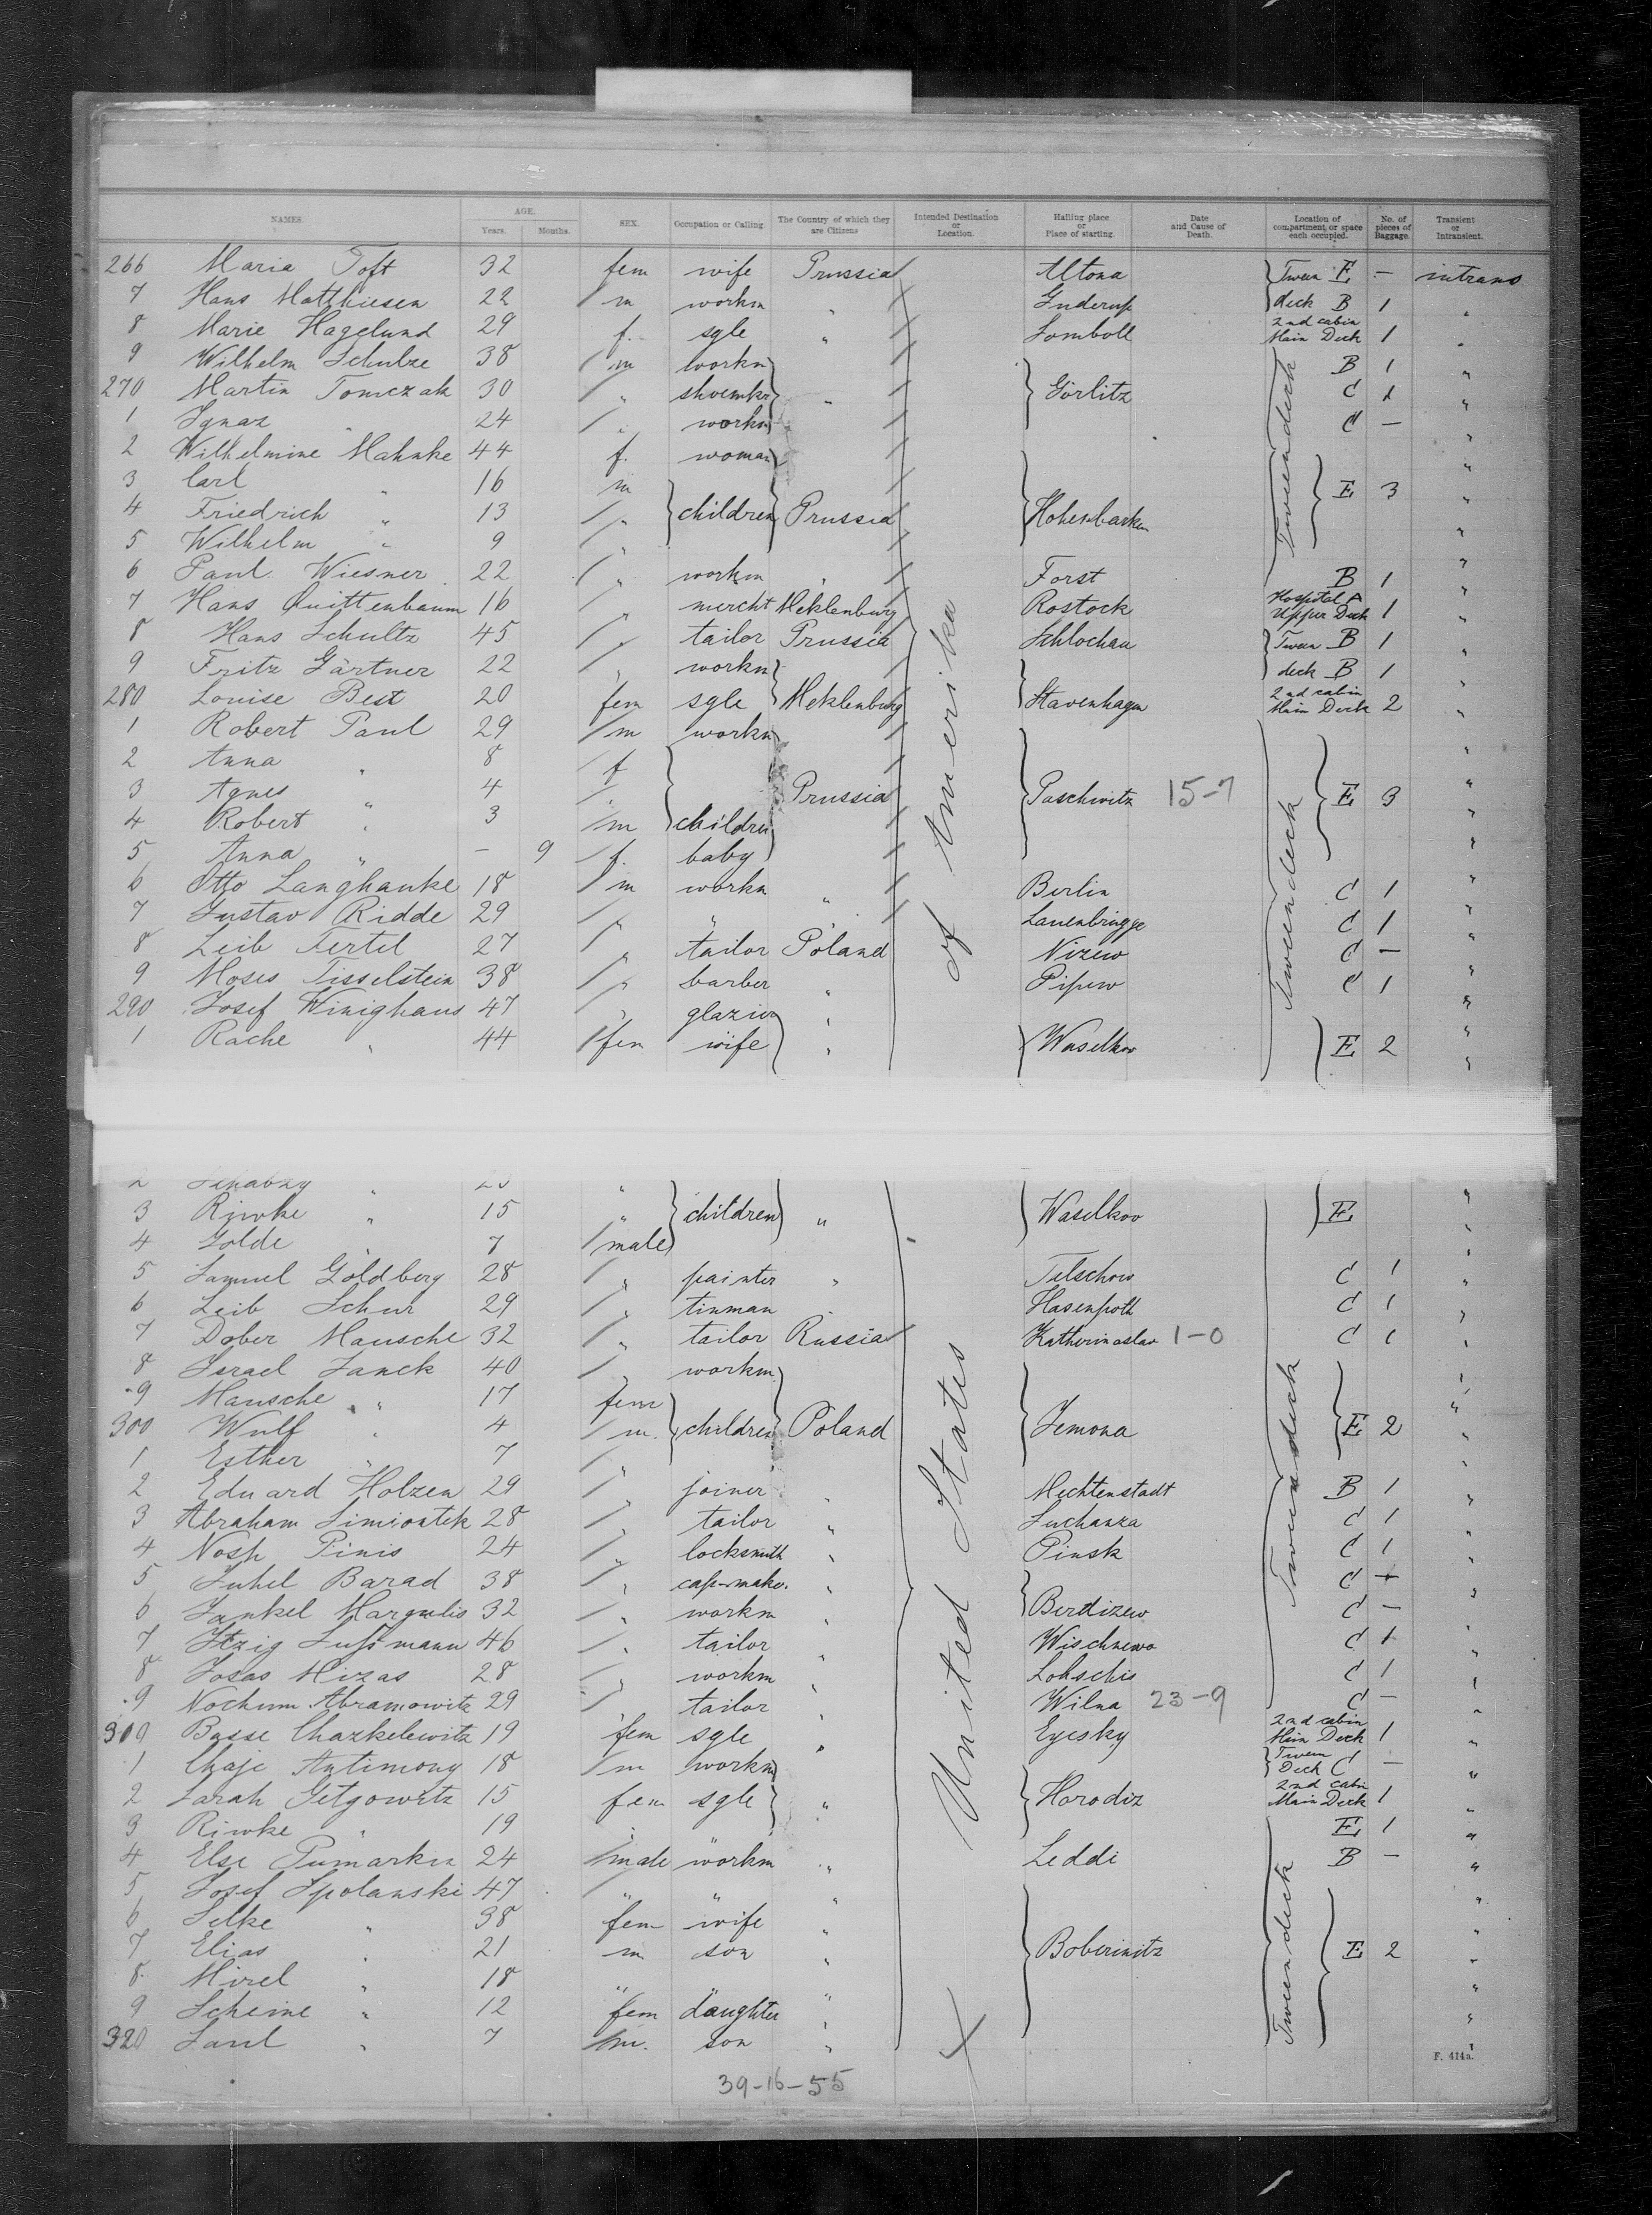 NAMES. AGE. Years. Months. SEX. Occupation or Calling. The Country of which they are Citizens Intended Destination or Location. Hailing place or Place of starting. Date and Cause of Death. Location of compartment or space each occupied. No. of pieces of Baggage. Transient or Intransient.
266 Maria Toft 32 fem wife Prussia Altona Tween E — intrans
7 Hans Matthiesen 22 m workm " Guderup deck B 1 "
8 Marie Hagelund 29 f. sgle " 2nd cabin Main Deck 1 "
9 Wilhelm Schulze 38 m workm B 1 "
270 Martin Tomczak 30 " shoemkr " Görlitz C 1 "
1 Ignaz " 24 " workm C — "
2 Wilhelmine Mahnke 44 f. woman "
3 Carl " 16 m E 3 "
4 Friedrich " 13 " children Prussia "
5 Wilhelm " 9 " "
6 Paul Wiesner 22 " workm " Forst B 1 "
7 Hans Quittenbaum 16 " mercht Meklenburg Rostock Hospital A Upper Deck 1 "
8 Hans Schultz 45 " tailor Prussia Schlochau Tween B 1 "
9 Fritz Gärtner 22 " workm deck B 1 "
280 Louise Best 20 fem sgle Meklenburg Stavenhagen 2nd cabin Main Deck 2 "
1 Robert Paul 29 m workm
2 Anna " 8 f "
3 Agnes " 4 " Prussia Paschwitz 15-7 E 3 "
4 Robert " 3 m children "
5 Anna " — 9 f. baby "
6 Otto Langhanke 18 m workm " Berlin C 1 "
7 Gustav Ridde 29 " " Lauenbrügge C 1 "
8 Leib Fertel 27 " tailor Poland Nizew C — "
9 Moses Tisselstein 38 " barber " Pipew C 1 "
290 Josef Winighaus 47 " glazier " "
1 Rache " 44 fem wife " Waselkov E 2 "
Tweendeck
of Amerika
3 Riwke " 15 " children " Waselkov E "
4 Golde " 7 male "
5 Samuel Goldberg 28 " painter " Telschow C 1 "
6 Leib Schur 29 " tinman " Hasenpoth C 1 "
7 Dober Mausche 32 " tailor Russia Katherinoslav 1-0 C 1 "
8 Israel Janck 40 " workm
9 Mausche " 17 fem
300 Wulf " 4 m. children Poland Jemona E 2 "
1 Esther " 7 "
2 Eduard Holzen 29 " joiner " Mechtenstadt B 1 "
3 Abraham Simiontek 28 " tailor " Suchanza C 1 "
4 Nosh Pinis 24 " locksmith " Pinsk C 1 "
5 Juhel Barad 38 " cap-maker " C "
6 Jankel Margulis 32 " workm " Berdizew C — "
7 Itzig Sussmann 46 " tailor " Wischnewo C 1 "
8 Josas Mizas 28 " workm " Lohschis C 1 "
9 Nochum Abramowitz 29 " tailor " Wilna 23-9 C — "
310 Basse Chazkelewitz 19 fem sgle " Eyesky 2nd cabin Main Deck 1 "
1 Chaje Antimony 18 m workm Tween Deck C — "
2 Sarah Getgowitz 15 fem sgle " Horodiz 2nd cabin Main Deck 1 "
3 Riwke " 19 " E 1 "
4 Else Pumarkin 24 male workm " Leddi B — "
5 Josef Spolanski 47 " " " "
6 Selke " 38 fem wife " "
7 Elias " 21 m son " Boberinitz E 2 "
8 Mirel " 18 " " "
9 Scheine " 12 fem daughter " "
320 Saul " 7 m. son " "
Tweendeck
Tweendeck
United States
F. 414a.
39-16-55